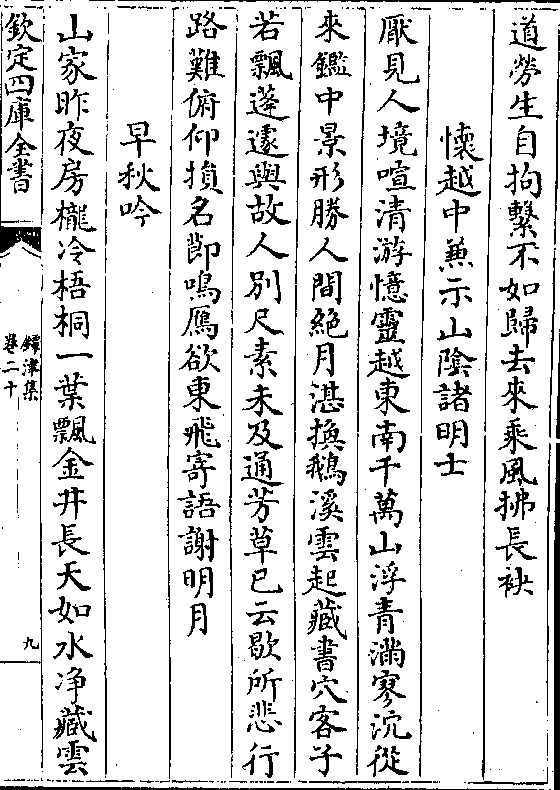 道勞生自拘繫不如歸去來乘風拂長袂
懷越中兼示山陰諸明士
厭見人境喧清游憶靈越東南千萬山浮青滿寥泬從
來鑑中景形勝人間絕月湛換鵝溪雲起藏書穴客子
若飄蓬遽與故人別尺素未及通芳草已云歇所悲行
路難俯仰損名節鳴鴈欲東飛寄語謝明月
早秋吟
山家昨夜房櫳冷梧桐一葉飄金井長天如水净藏雲
欽定四庫全書
鐔津集
卷二十
九